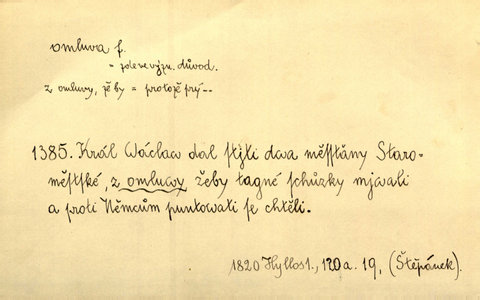 omluva f.
= zde ve význ. důvod.
z omluvy, že by = protože prý --
1385. Král Wáclaw dal stjti dwa měsstány Staro-
městské, z omluwy žeby tagné schůzky mjwali
a proti Němcům puntowati se chtěli.
1820 Hyllos 1., 120 a. 19, (Štěpánek).